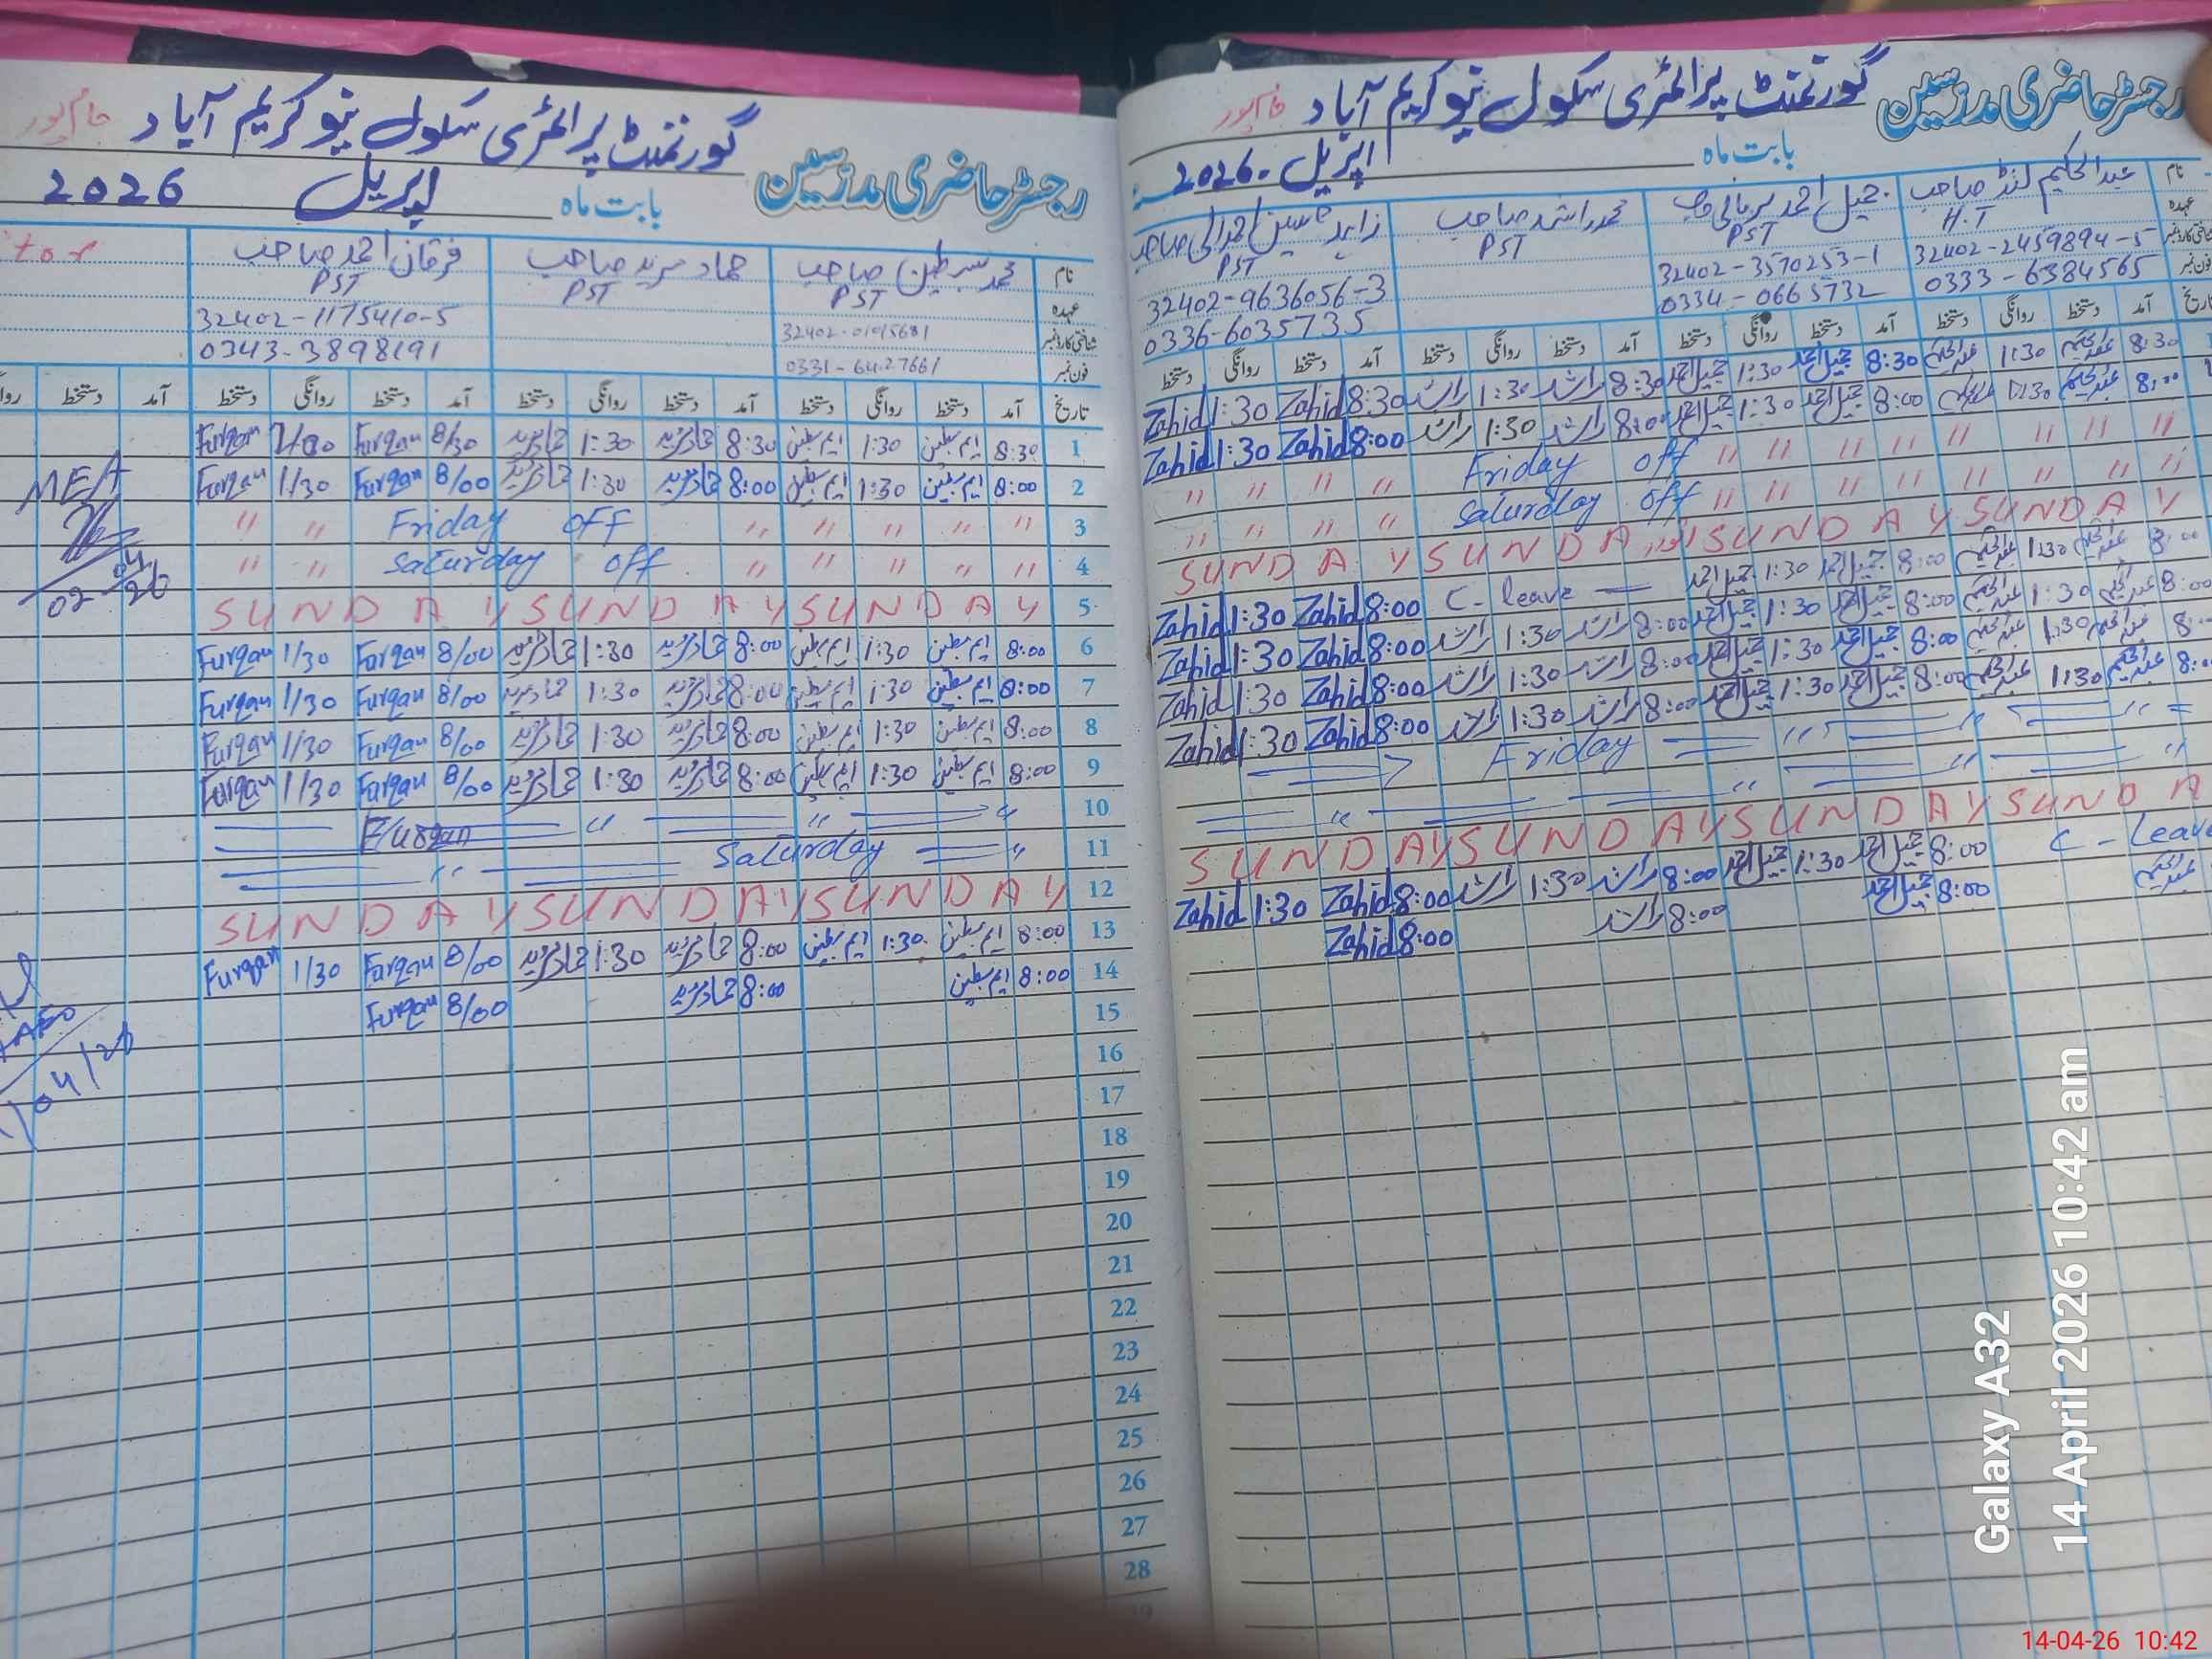 رجسٹر حاضری مدرسین گورنمنٹ پرائمری سکول نیو کریم آباد
بابت ماہ اپریل 2026
نام عبدالحکیم لنڈ صاحب
جمیل احمد
محمد راشد صاحب
زاہد حسین صاحب
عہدہ H.T PST PST PST
32402-2459894-5 32402-3570253-1 32402-9636056-3
فون نمبر 0333-6384565 0334-0665732 0336-6035735
آمد دستخط روانگی دستخط آمد دستخط روانگی دستخط آمد دستخط روانگی دستخط آمد دستخط روانگی دستخط
8:30 عبدالحکیم 1:30 عبدالحکیم 8:30 جمیل احمد 1:30 جمیل احمد 8:30 راشد 1:30 راشد 8:30 Zahid 1:30 Zahid
8:00 عبدالحکیم 1:30 عبدالحکیم 8:00 جمیل احمد 1:30 جمیل احمد 8:00 راشد 1:30 راشد 8:00 Zahid 1:30 Zahid
" " " " Friday off " " " " " " " "
" " " " Saturday off " " " " " " " "
SUNDAY SUNDAY SUNDAY SUNDAY
8:00 عبدالحکیم 1:30 عبدالحکیم 8:00 جمیل احمد 1:30 جمیل احمد C-leave — 8:00 Zahid 1:30 Zahid
8:00 عبدالحکیم 1:30 عبدالحکیم 8:00 جمیل احمد 1:30 جمیل احمد 8:00 راشد 1:30 راشد 8:00 Zahid 1:30 Zahid
8:00 عبدالحکیم 1:30 عبدالحکیم 8:00 جمیل احمد 1:30 جمیل احمد 8:00 راشد 1:30 راشد 8:00 Zahid 1:30 Zahid
8:00 عبدالحکیم 1:30 عبدالحکیم 8:00 جمیل احمد 1:30 جمیل احمد 8:00 راشد 1:30 راشد 8:00 Zahid 1:30 Zahid
Friday
SUNDAY SUNDAY SUNDAY SUNDA
C-leave 8:00 جمیل احمد 1:30 جمیل احمد 8:00 راشد 1:30 راشد 8:00 Zahid 1:30 Zahid
عبدالحکیم 8:00 جمیل احمد 8:00 راشد 8:00 Zahid
رجسٹر حاضری مدرسین گورنمنٹ پرائمری سکول نیو کریم آباد
بابت ماہ اپریل 2026
نام محمد سبطین صاحب
حماد فرید صاحب
فرقان احمد صاحب
tor
عہدہ PST PST PST
شناختی کارڈ نمبر 32402-1175410-5
فون نمبر 0331-6427661 0343-3898191
تاریخ آمد دستخط روانگی دستخط آمد دستخط روانگی دستخط آمد دستخط روانگی دستخط آمد دستخط
1 8:30 ایم سبطین 1:30 ایم سبطین 8:30 حماد فرید 1:30 حماد فرید 8/30 Furqan Furqan
2 8:00 ایم سبطین 1:30 ایم سبطین 8:00 حماد فرید 1:30 حماد فرید 8/00 Furqan 1/30 Furqan
MEA
02-04-26
3 " " Friday off " " " " "
4 " " Saturday off " " " " "
5 SUNDAY SUNDAY SUNDAY
6 8:00 ایم سبطین 1:30 ایم سبطین 8:00 حماد فرید 1:30 حماد فرید 8/00 Furqan 1/30 Furqan
7 8:00 ایم سبطین 1:30 ایم سبطین 8:00 حماد فرید 1:30 حماد فرید 8/00 Furqan 1/30 Furqan
8 8:00 ایم سبطین 1:30 ایم سبطین 8:00 حماد فرید 1:30 حماد فرید 8/00 Furqan 1/30 Furqan
9 8:00 ایم سبطین 1:30 ایم سبطین 8:00 حماد فرید 1:30 حماد فرید 8/00 Furqan 1/30 Furqan
10
11 Saturday
12 SUNDAY SUNDAY SUNDAY
13 8:00 ایم سبطین 1:30 ایم سبطین 8:00 حماد فرید 1:30 حماد فرید 8/00 Furqan 1/30 Furqan
14 8:00 ایم سبطین 8:00 حماد فرید 8/00 Furqan
15
16
17
18
19
20
21
22
23
24
25
26
27
28
Galaxy A32
14 April 2026 10:42 am
14-04-26 10:42